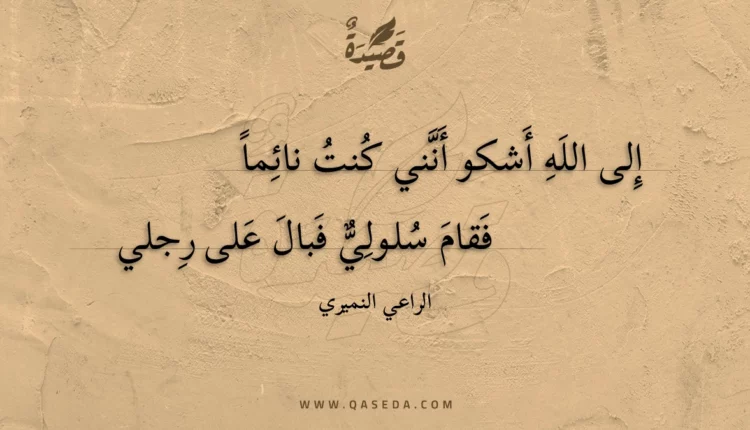 قَصِيْدَةٌ
إِلى اللَهِ أَشكو أَنَّني كُنتُ نائِماً
فَقامَ سُلولِيٌّ فَبالَ عَلى رِجلي
الراعي النميري
WWW.QASEDA.COM